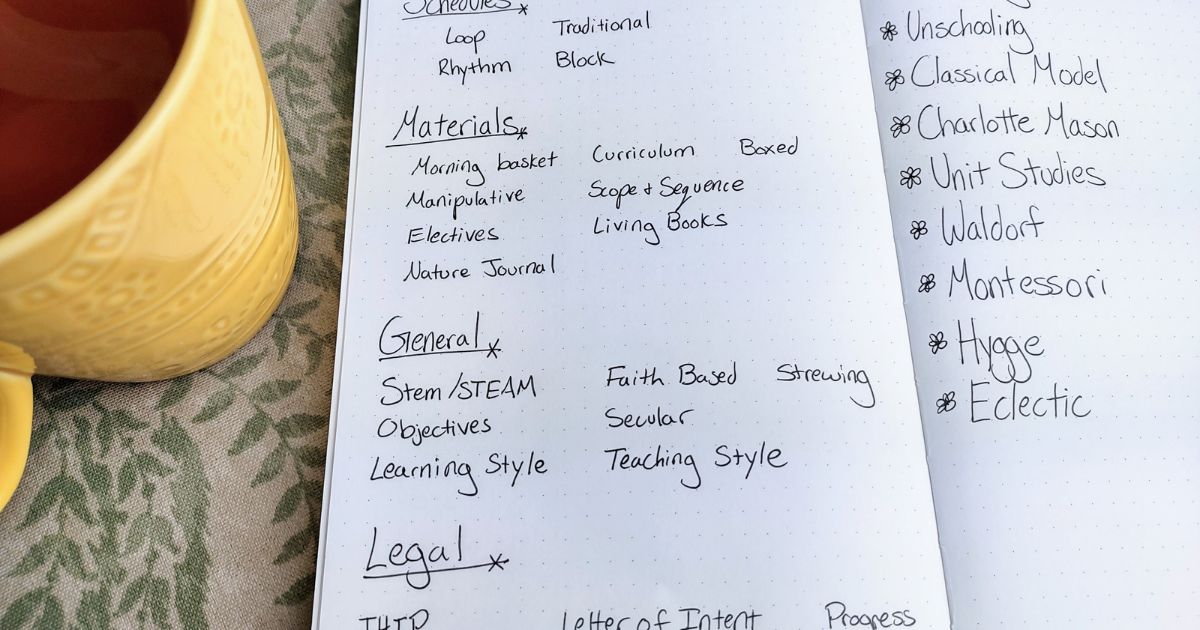 Schedules
Loop Traditional
Rhythm Block
Materials
Morning basket Curriculum Boxed
Manipulative Scope & Sequence
Electives Living Books
Nature Journal
General
Stem/STEAM Faith Based Strewing
Objectives Secular
Learning Style Teaching Style
Legal
Letter of Intent Progress
Unschooling
Classical Model
Charlotte Mason
Unit Studies
Waldorf
Montessori
Hygge
Eclectic